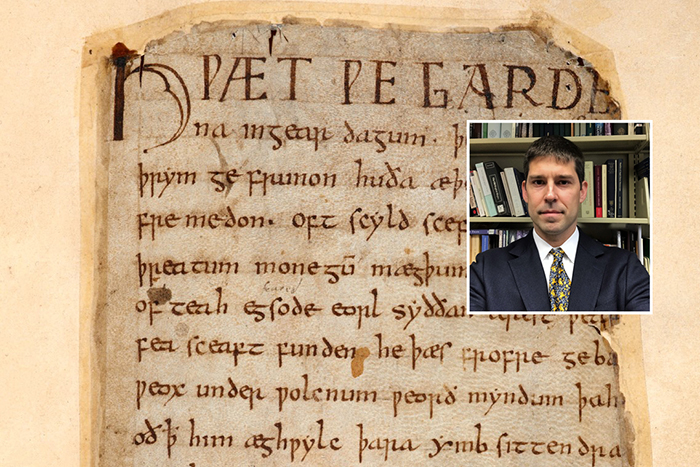 HǷÆT ǷE GARDE
na ingear dagum. þ
þrym ge frunon huða æþe
fre medon. oft scyld scef
þreatum monegū mægþum
of teah egsode eorl syððan
fea sceaft funden he þæs frofre geba
ƿeox under ƿolcnum ƿeorð myndum þah
oð ꝥ him æghƿylc þara ymb sittendra